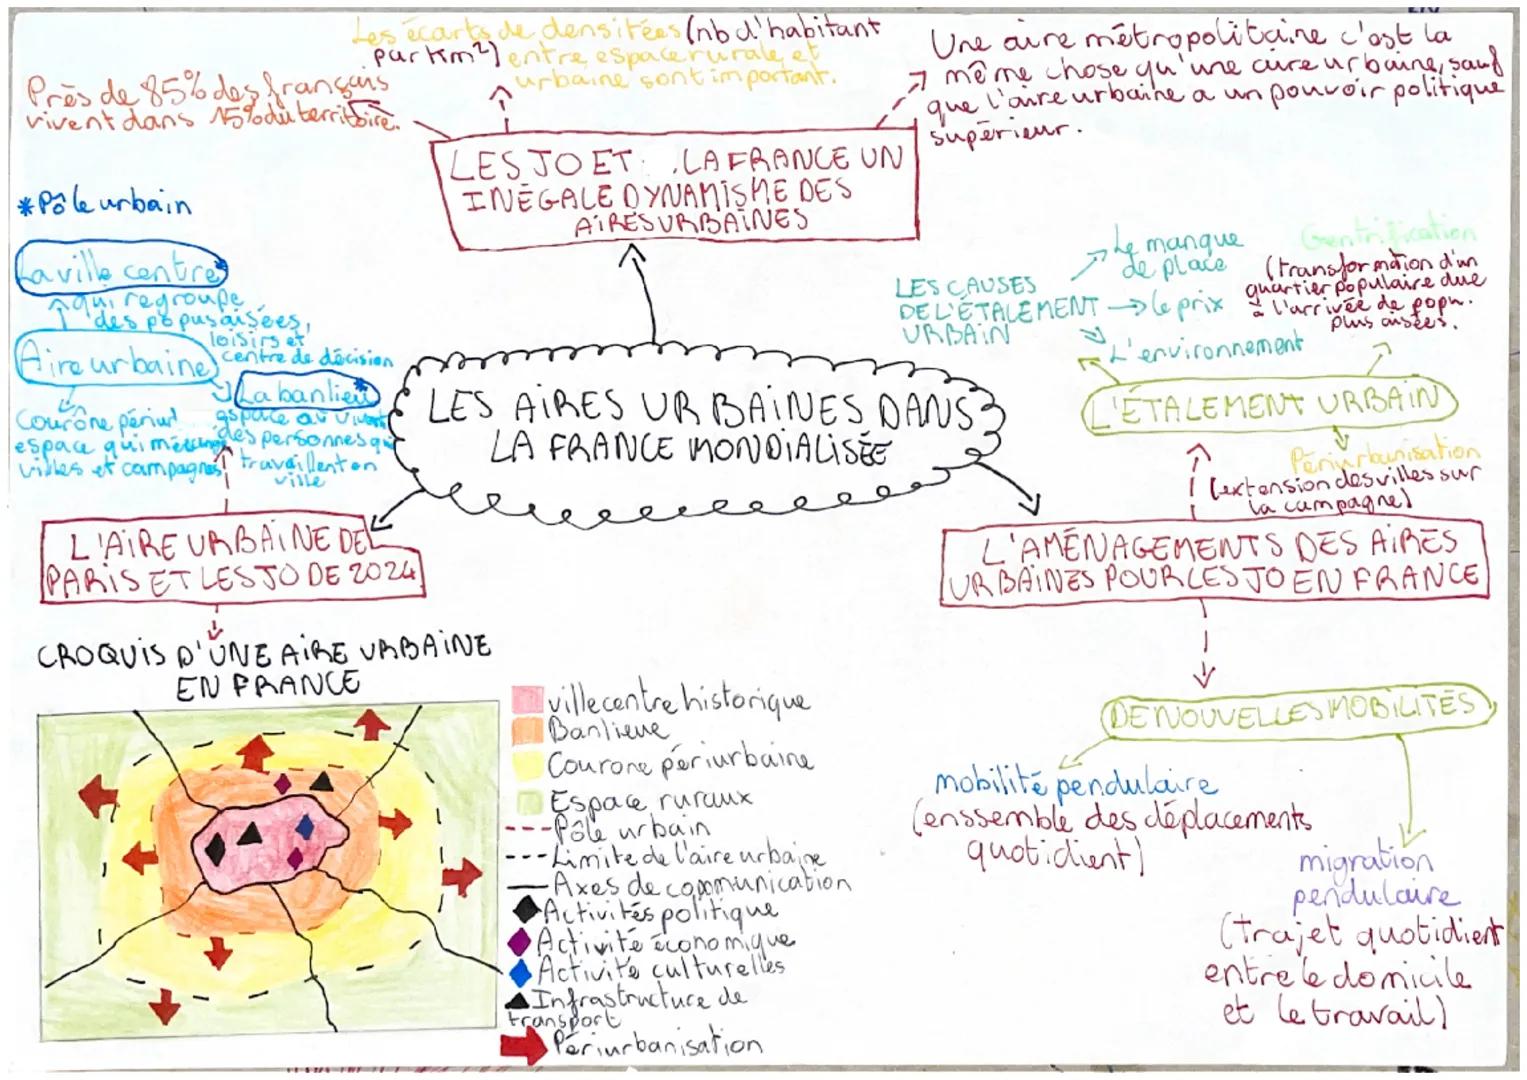 Les écarts de densitées (nb d'habitant
par Km²) entre espace rurale et
urbaine sont important.
Près de 85% des français
vivent dans 15% du territoire.
Une aire métropolitaine c'est la
même chose qu'une aire urbaine, sauf
que l'aire urbaine a un pouvoir politique
supérieur.
LES JO ET LA FRANCE UN
INÉGALE DYNAMISME DES
AIRES URBAINES
*Pôle urbain
La ville centre*
qui regroupe
des popus aisées,
loisirs et
centre de décision
Aire urbaine
La banlieu*
espace où vivent
des personnes qui
travaillent en
ville
Courône périur
espace qui mélange
villes et campagnes
LES CAUSES
DE L'ÉTALEMENT
URBAIN
Le manque
de place
le prix
L'environnement
Gentrification
(transformation d'un
quartier populaire due
à l'arrivée de popu.
plus aisées.
L'ÉTALEMENT URBAIN
Périurbanisation
(extension des villes sur
la campagne)
LES AIRES URBAINES DANS
LA FRANCE MONDIALISÉE
L'AIRE URBAINE DE
PARIS ET LES JO DE 2024
L'AMÉNAGEMENTS DES AIRES
URBAINES POUR LES JO EN FRANCE
CROQUIS D'UNE AIRE URBAINE
EN FRANCE
ville centre historique
Banlieue
Courone périurbaine
Espace ruraux
Pôle urbain
Limite de l'aire urbaine
Axes de communication
Activités politique
Activité économique
Activité culturelles
Infrastructure de
transport
Périurbanisation
DE NOUVELLES MOBILITÉS
mobilité pendulaire
(enssemble des déplacements
quotidient)
migration
pendulaire
(Trajet quotidient
entre le domicile
et le travail)